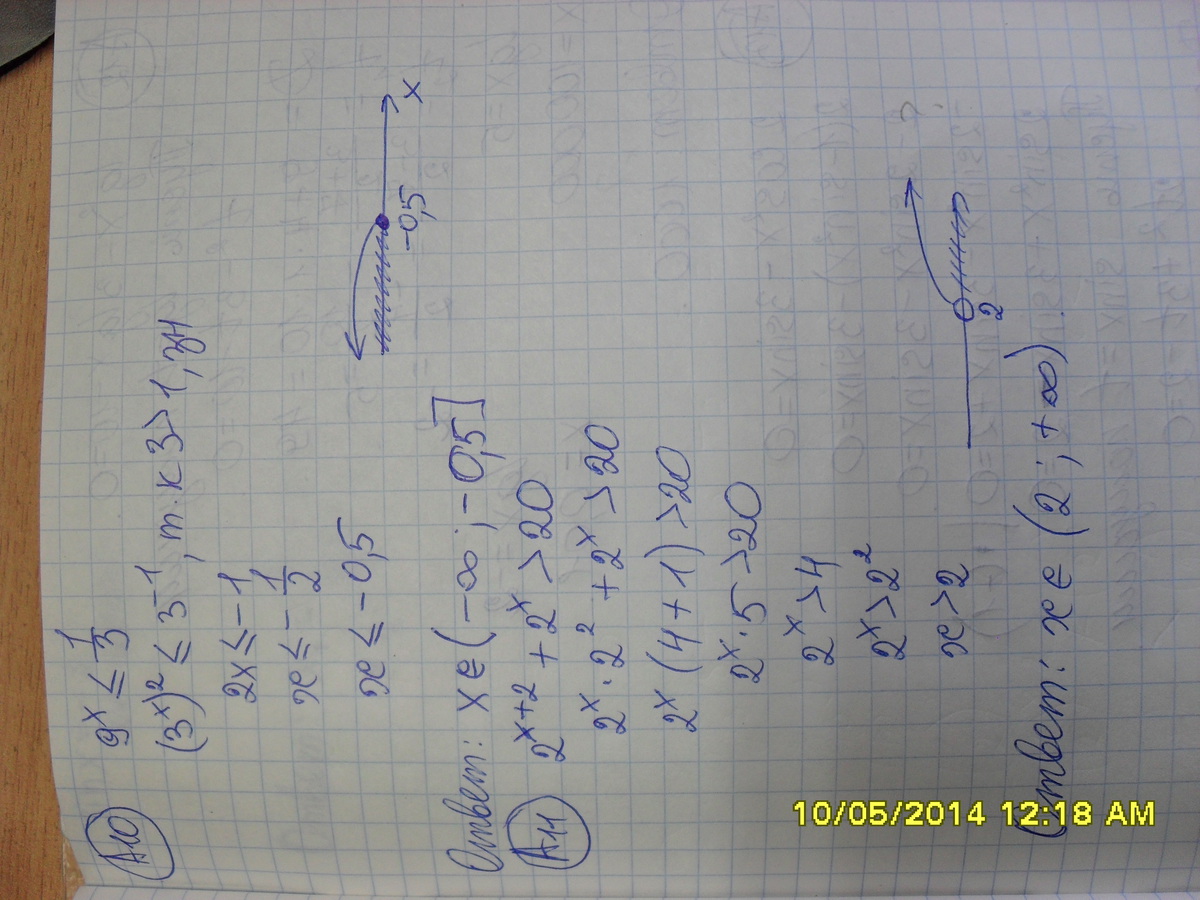 А10
9ˣ ≤ 1/3
(3ˣ)² ≤ 3⁻¹, т.к 3>1, зн
2x ≤ -1
x ≤ -1/2
x ≤ -0,5
-0,5
x
Ответ: x∈(-∞;-0,5]
А11
2ˣ⁺² + 2ˣ > 20
2ˣ·2² + 2ˣ > 20
2ˣ(4+1) > 20
2ˣ·5 > 20
2ˣ > 4
2ˣ > 2²
x > 2
2
Ответ: x∈(2;+∞)
10/05/2014 12:18 AM